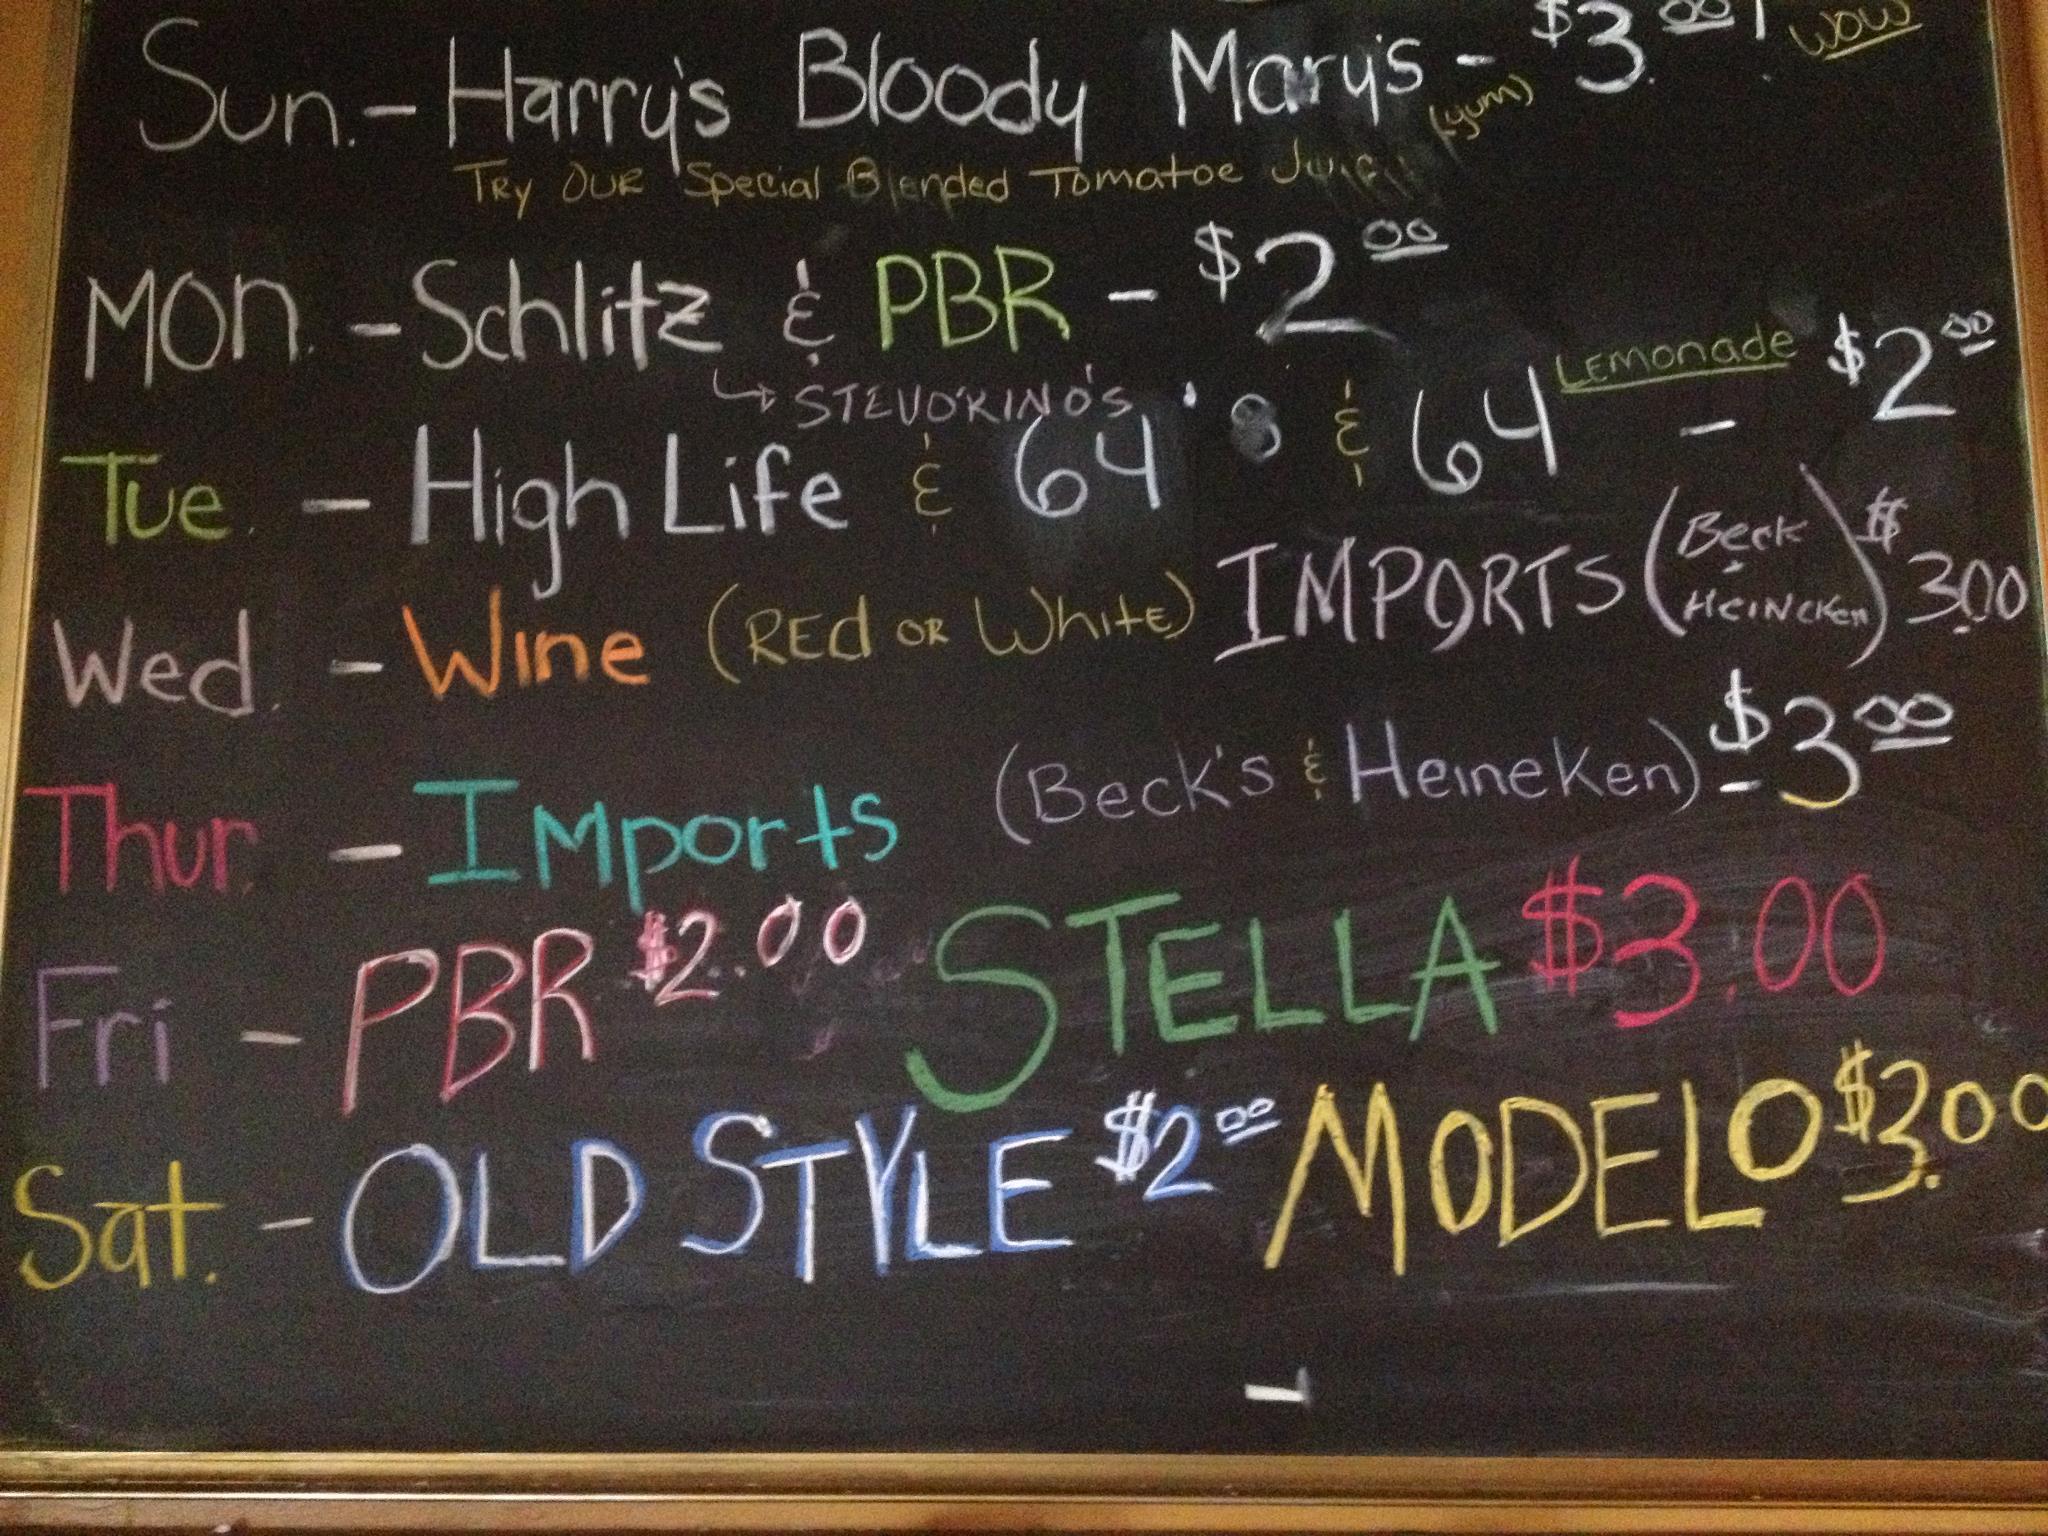 Sun. - Harry's Bloody Mary's - $3.00! wow
Try Our Special Blended Tomatoe (yum)
Mon. - Schlitz & PBR - $2.00
↳ STEVO'KINO'S
Tue. - High Life & 64 & 64 Lemonade - $2.00
Wed. - Wine (Red or White) IMPORTS (Beck Heineken) $3.00
Thur. - Imports (Beck's & Heineken) - $3.00
Fri - PBR $2.00 STELLA $3.00
Sat. - OLD STYLE $2.00 MODELO $3.00
-